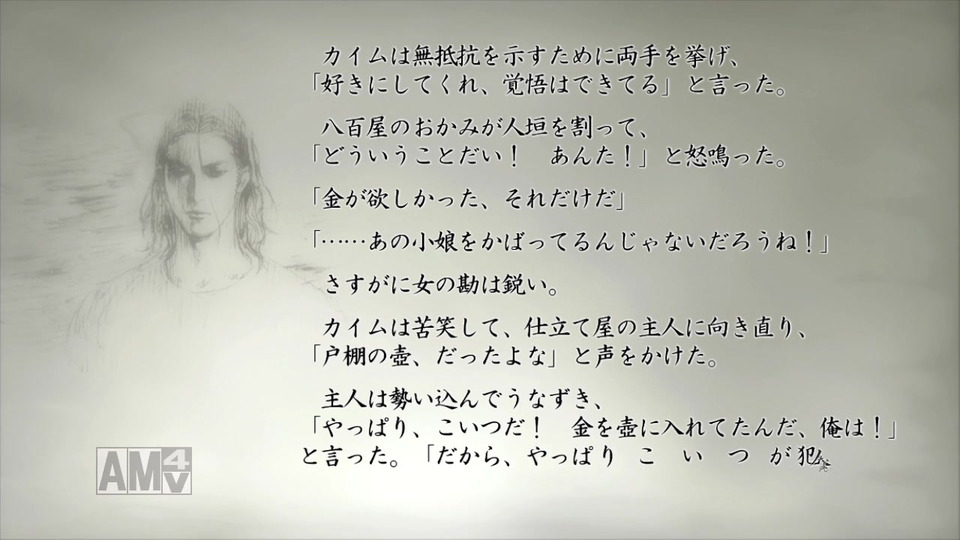 カイムは無抵抗を示すために両手を挙げ、
「好きにしてくれ、覚悟はできてる」と言った。
八百屋のおかみが人垣を割って、
「どういうことだい！　あんた！」と怒鳴った。
「金が欲しかった、それだけだ」
「……あの小娘をかばってるんじゃないだろうね！」
さすがに女の勘は鋭い。
カイムは苦笑して、仕立て屋の主人に向き直り、
「戸棚の壺、だったよな」と声をかけた。
主人は勢い込んでうなずき、
「やっぱり、こいつだ！　金を壺に入れてたんだ、俺は！」
と言った。「だから、やっぱり　こ　い　つ　が 犯
AM4V